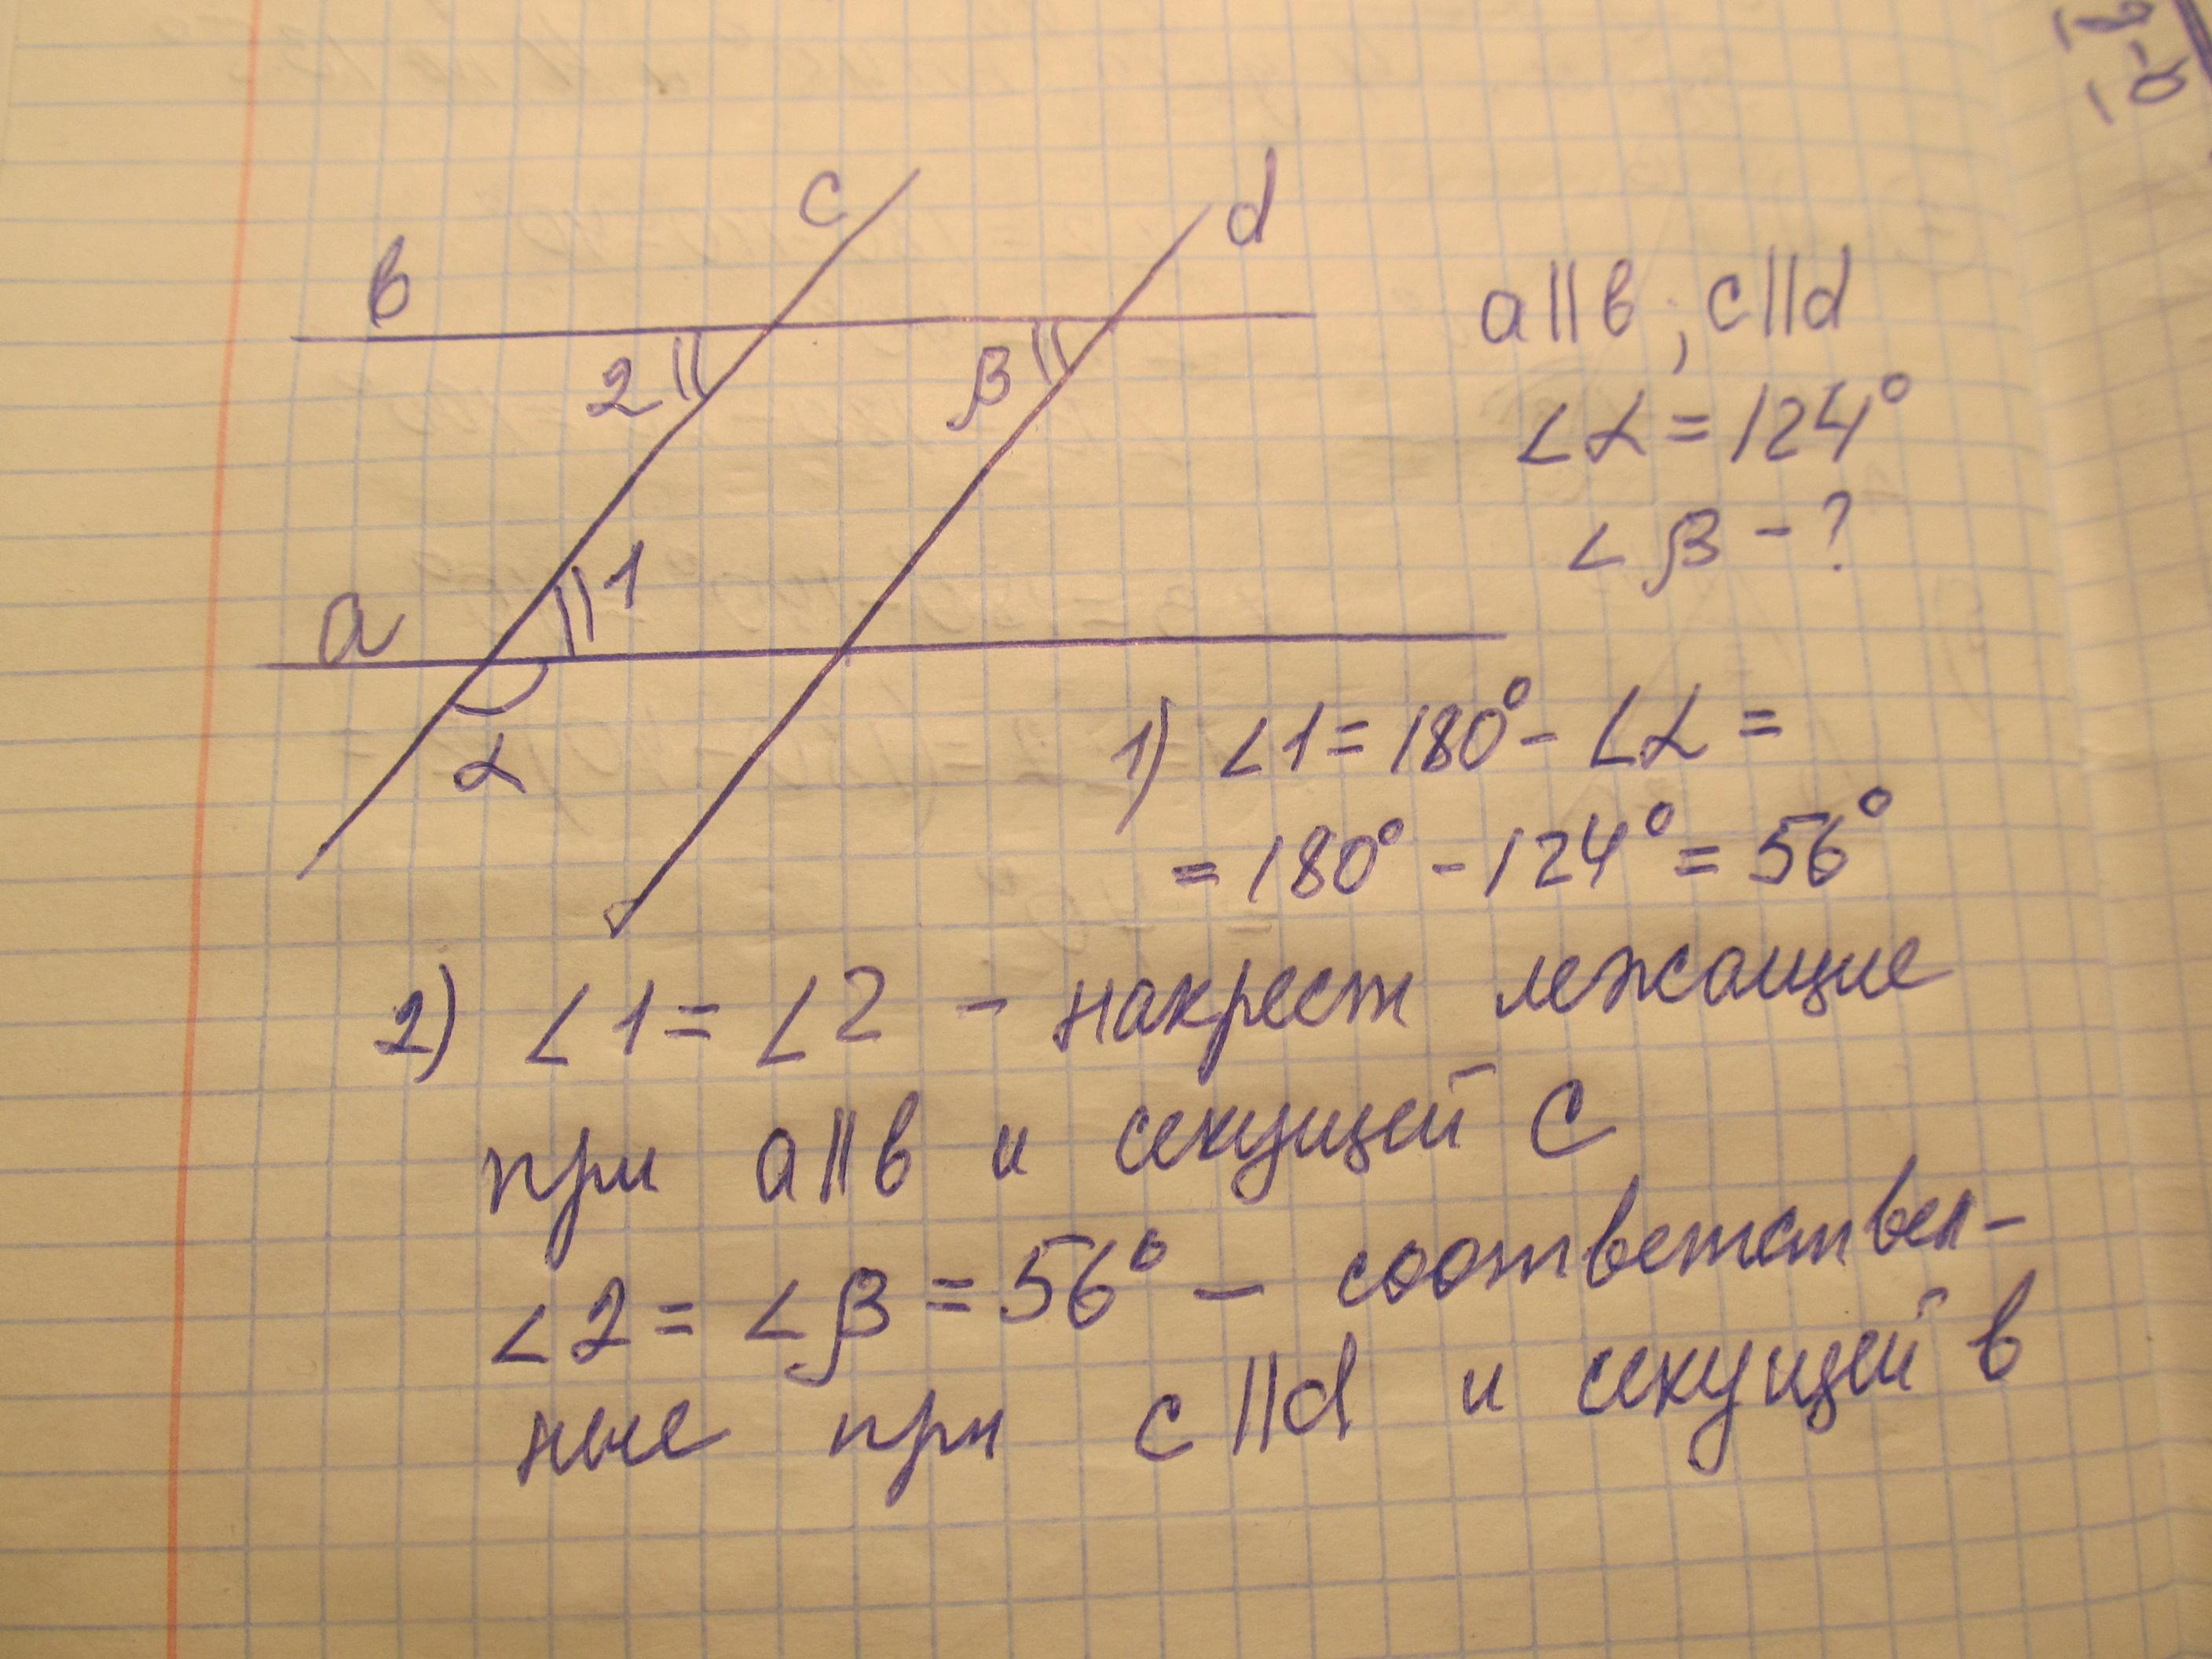 c
d
в
2
β
1
a
α
a||в ; c||d
∠α = 124°
∠β - ?
1) ∠1 = 180° - ∠α =
= 180° - 124° = 56°
2) ∠1 = ∠2 - накрест лежащие
при a||в и секущей c
∠2 = ∠β = 56° - соответствен-
ные при c||d и секущей в